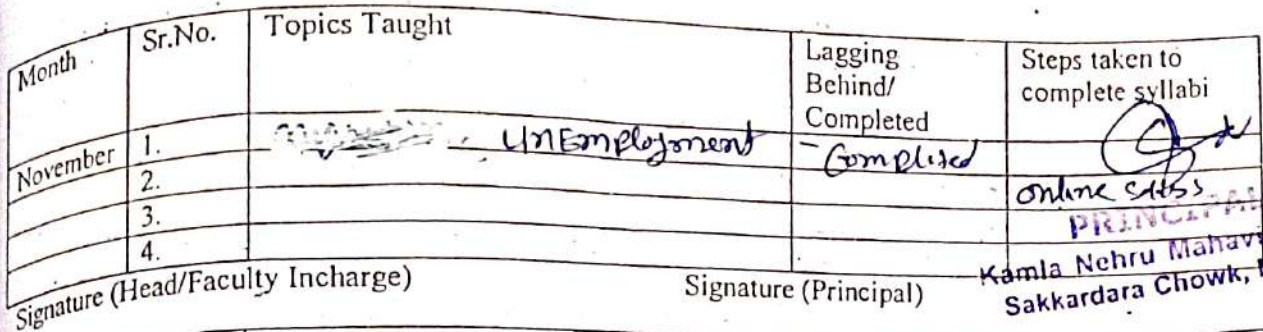 Month Sr.No. Topics Taught Lagging Behind/ Completed Steps taken to complete syllabi
November 1. UnEmployment - Completed
2. online
3.
4.
PRINCIPAL
Signature (Head/Faculty Incharge) Signature (Principal) Kamla Nehru Mahav
Sakkardara Chowk,